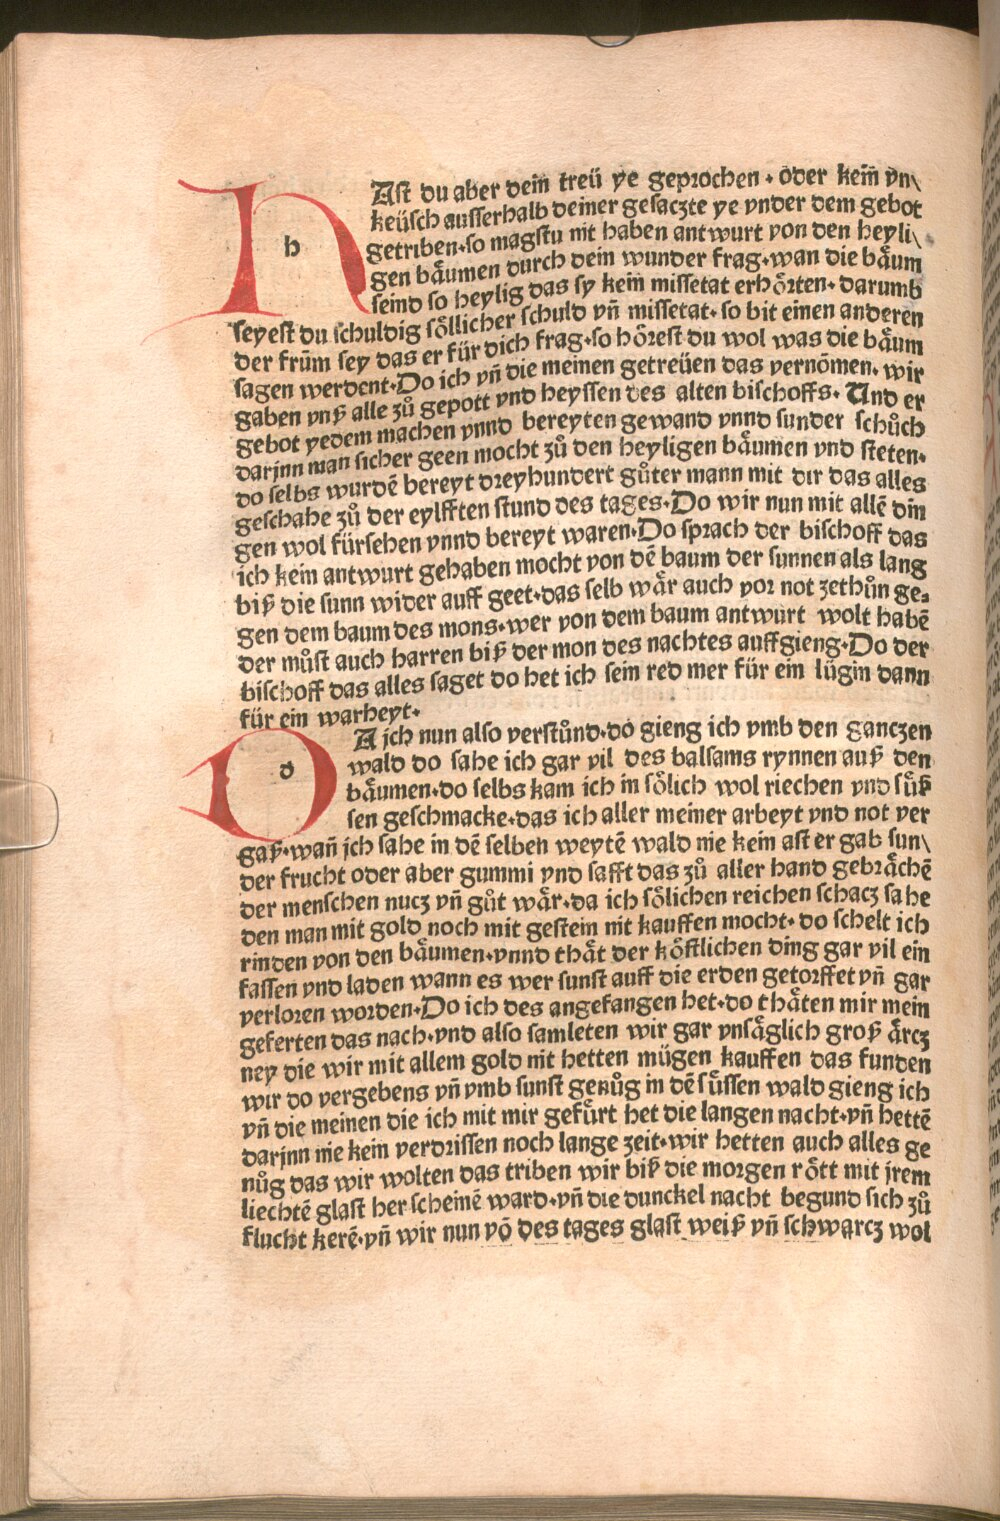 HAst du aber dein treü ye geprochen · oder kein vn\
keüsch ausserhalb deiner gesaczte ye vnder dem gebot
getriben·so magstu nit haben antwurt von den heyli\
gen bäumen durch dein wunder frag·wan die bäum
seind so heylig das sy kein missetat erhörten· darumb
seyest du schuldig söllicher schuld vñ missetat· so bit einen anderen
der frům sey das er für dich frag·so hörest du wol was die bäum
sagen werdent·Do ich vñ die meinen getreüen das vernõmen· wir
gaben vnß alle zů gepott vnd heyssen des alten bischoffs· Und er
gebot yedem machen vnnd bereyten gewand vnnd sunder schůch
darjnn man sicher geen mocht zů den heyligen bäumen vnd steten·
do selbs wurdē bereyt dreyhundert gůter mann mit dir das alles
geschahe zů der eylfften stund des tages·Do wir nun mit allē din
gen wol fürsehen vnnd bereyt waren·Do sprach der bischoff das
ich kein antwurt gehaben mocht von dē baum der sunnen als lang
biß die sunn wider auff geet·das selb wär auch vor not zethůn ge=
gen dem baum des mons·wer von dem baum antwurt wolt habē
der můst auch harren biß der mon des nachtes auffgieng·Do der
bischoff das alles saget do het ich sein red mer für ein lügin dann
für ein warheyt·
DA jch nun also verstůnd·do gieng ich vmb den ganczen
wald do sahe ich gar vil des balsams rynnen auß den
bäumen·do selbs kam ich in sölich wol riechen vnd süß
sen geschmacke·das ich aller meiner arbeyt vnd not ver
gaß·wañ jch sahe in dē selben weytē wald nie kein ast er gab sun\
der frucht oder aber gummi vnd safft das zů aller hand gebrächē
der menschen nucz vñ gůt wär·da ich sölichen reichen schacz sahe
den man mit gold noch mit gestein nit kauffen mocht· do schelt ich
rinden von den bäumen·vnnd thät der köstlichen ding gar vil ein
fassen vnd laden wann es wer sunst auff die erden getorffet vñ gar
verloren worden·Do ich des angefangen het·do thäten mir mein
geferten das nach·vnd also samleten wir gar vnsäglich groß ärcz
ney die wir mit allem gold nit hetten mügen kauffen das funden
wir do vergebens vñ vmb sunst genůg in dē süssen wald gieng ich
vñ die meinen die ich mit mir gefürt het die langen nacht·vñ hettē
darjnn nie kein verdrissen noch lange zeit·wir hetten auch alles ge
nůg das wir wolten das triben wir biß die morgen rött mit jrem
liechtē glast her scheinē ward·vñ die dunckel nacht begund sich zů
flucht kerē·vñ wir nun võ des tages glast weiß vñ schwarcz wol